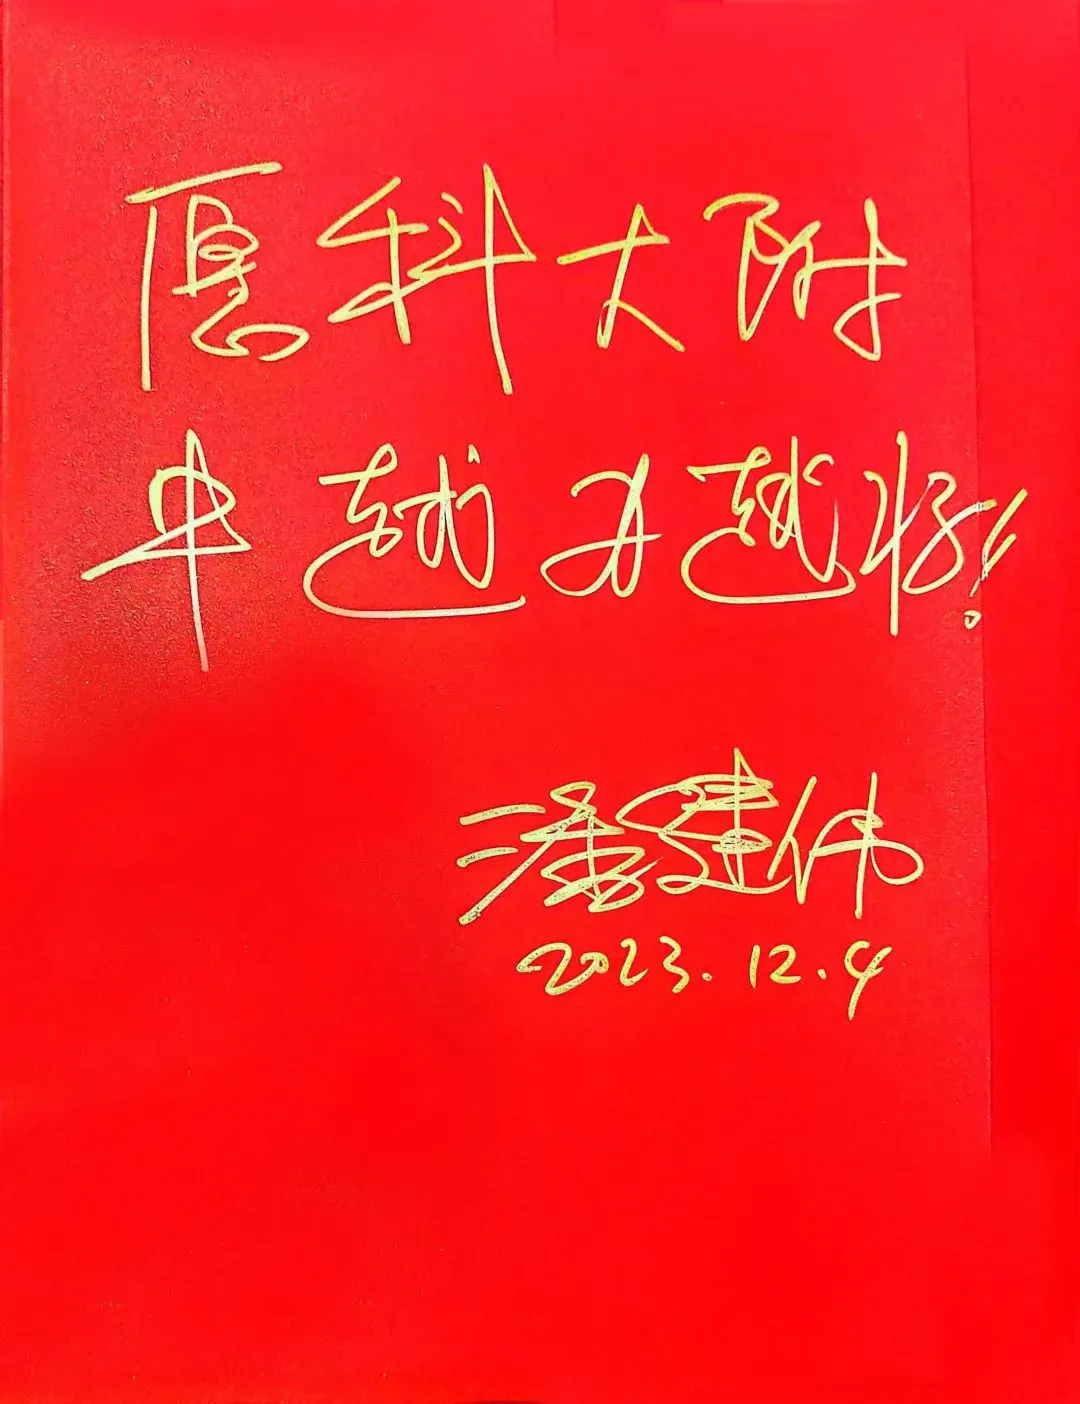 厦科大附
中越办越好!
潘建伟
2023.12.4